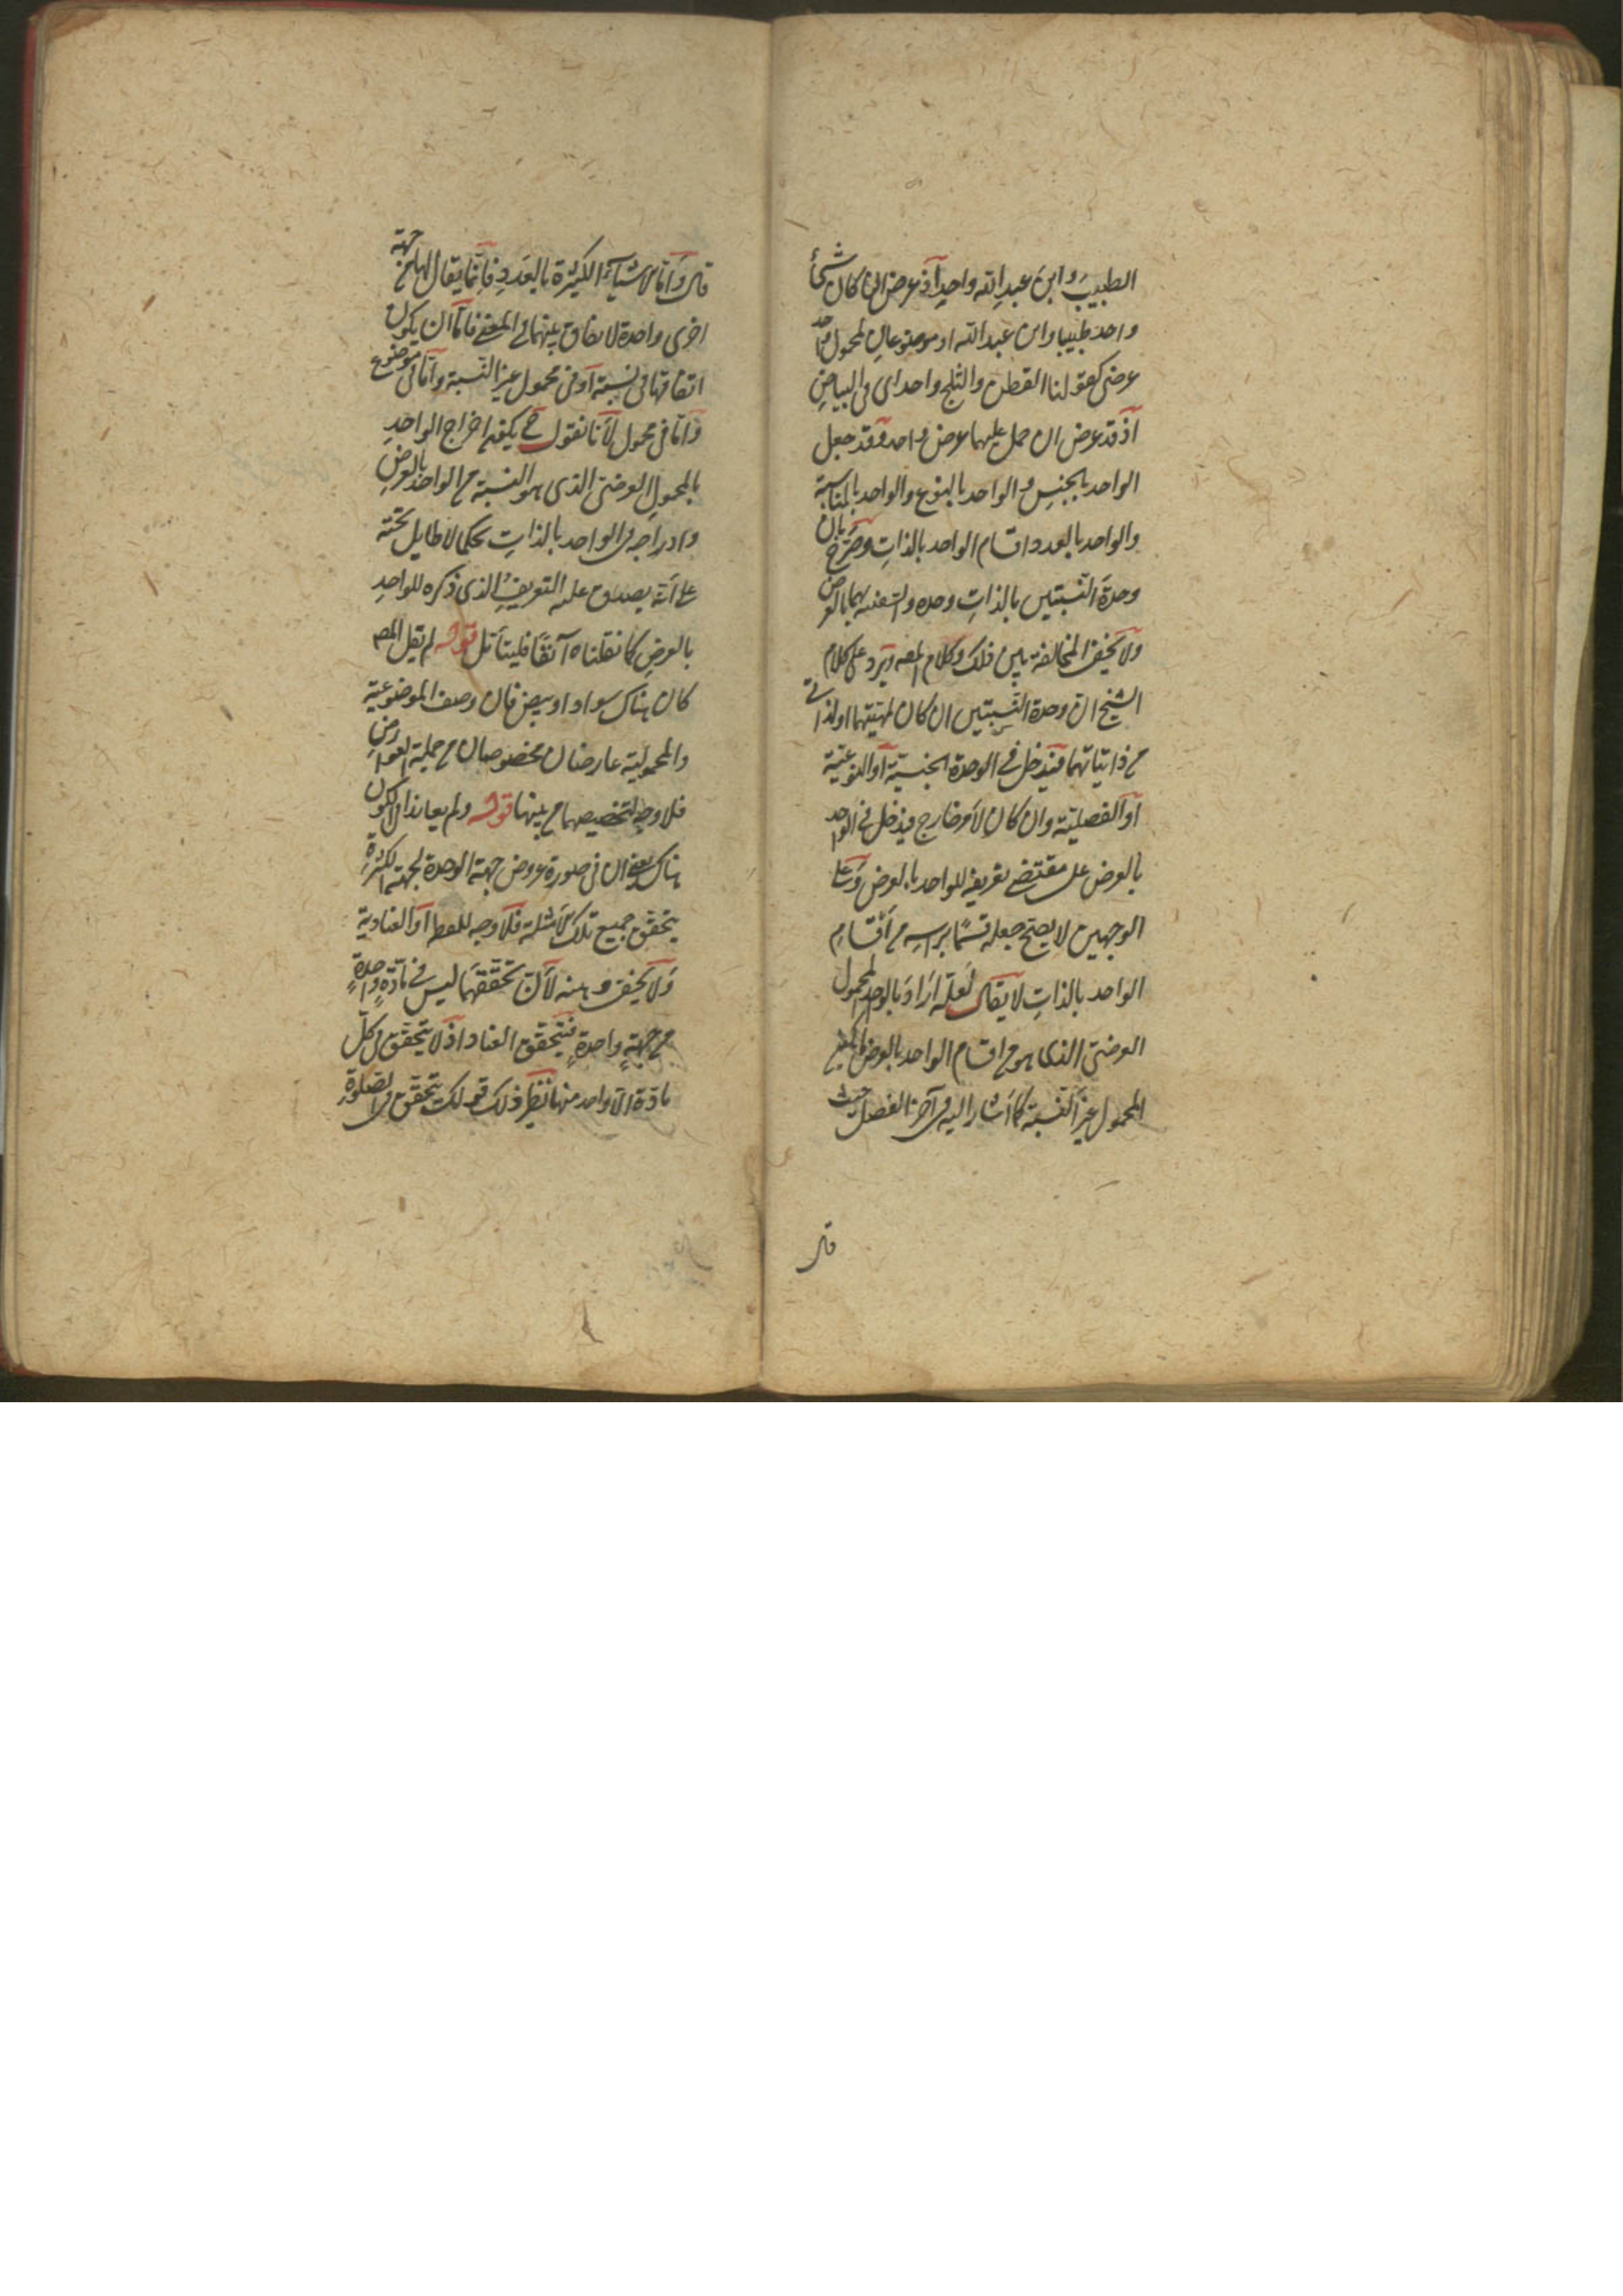 الطبيب وابن عبد الله واحد اذ عرض ان كان شيأ
واحد طبيبا وابن عبد الله او موضوعان لمحمول واحد
عرضى كقولنا القطن والثلج واحد اى فى البياض
اذ قد عرض ان حمل عليهما عرض واحد وقد جعل
الواحد بالجنس والواحد بالنوع والواحد بالمناسبة
والواحد بالعدد اقسام الواحد بالذات وصرح بان
وحدة النسبتين بالذات وحده والتغنيه بهما بالعرض
ولا يخفى المخالفة بين ذلك وكلام المصه ويرد على كلام
الشيخ ان وحدة النسبتين ان كان لمهيتهما او لذاتى
من ذاتياتهما فيدخل فى الوحدة الجنسية او النوعية
او الفصلية وان كان لامر خارج فيدخل فى الواحد
بالعرض على مقتضى تعريفه للواحد بالعرض وعلى
الوجهين لا يصح جعله قسما براسه من اقسام
الواحد بالذات لا يقال لعله اراد بالواحد المحمول
العرضى الذى هو من اقسام الواحد بالعرض
المحمول غير النسبة كما اشار اليه فى آخر الفصل حيث
قال
قال واما الاشياء الكثيرة بالعدد فانما يقال لها من جهة
اخرى واحدة لاتفاق بينهما فى المعنى فاما ان يكون
اتفاقها فى نسبة او فى محمول غير النسبة واما فى موضوع
واما فى محمول لانا نقول ح يكفيه اخراج الواحد
بالمحمول العرضى الذى هو النسبة من الواحد بالعرض
وادراجه فى الواحد بالذات تحكما لا طايل تحته
على انه يصدق عليه التعريف الذى ذكره للواحد
بالعرض كما نقلناه آنفا فليتأمل قوله لم يقل المصه
كان هناك سواد او بيض فان وصف الموضوعية
والمحمولية عارضان مخصوصان من جملة العوارض
فلا وجه لتخصيصهما من بينها قوله ولم يعاندا الكون
هناك يعنى ان فى صورة عروض جهة الوحدة لجهة الكثرة
يتحقق جميع تلك الامثلة فلا وجه للعط او العنادية
ولا يخفى وهنه لان تحققها ليس فى مادة واحدة
من جهة واحدة فيتحقق العناد اذ لا يتحقق فى كل
مادة الا واحد منها نظير ذلك قولك يتحقق فى الصلوة